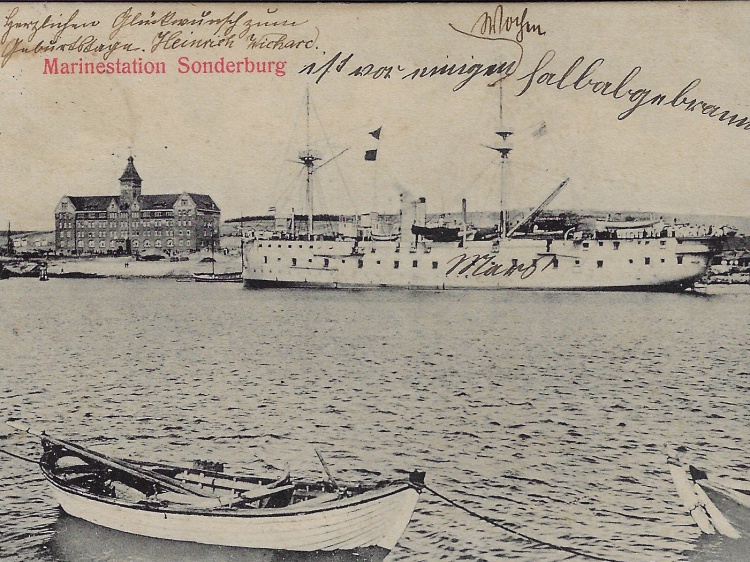 Herzlichen Glückwunsch zum
Geburtstage. Heinrich Wichard.
Marinestation Sonderburg
Wochen
ist vor einigen halbabgebrannt
Mars